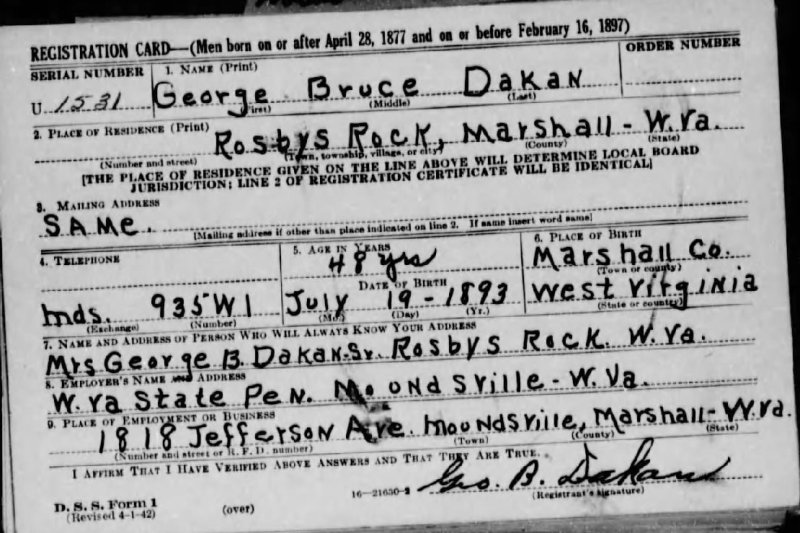 REGISTRATION CARD—(Men born on or after April 28, 1877 and on or before February 16, 1897)
SERIAL NUMBER 1. NAME (Print) ORDER NUMBER
U 1531 George Bruce Dakan
(First) (Middle) (Last)
2. PLACE OF RESIDENCE (Print)
Rosbys Rock, Marshall - W.Va.
(Number and street) (Town, township, village, or city) (County) (State)
[THE PLACE OF RESIDENCE GIVEN ON THE LINE ABOVE WILL DETERMINE LOCAL BOARD
JURISDICTION; LINE 2 OF REGISTRATION CERTIFICATE WILL BE IDENTICAL]
3. MAILING ADDRESS
SAMe.
[Mailing address if other than place indicated on line 2. If same insert word same]
4. TELEPHONE 5. AGE IN YEARS 6. PLACE OF BIRTH
48 yrs Marshall Co.
DATE OF BIRTH (Town or county)
Mds. 935W1 July 19 - 1893 West Virginia
(Exchange) (Number) (Mo.) (Day) (Yr.) (State or country)
7. NAME AND ADDRESS OF PERSON WHO WILL ALWAYS KNOW YOUR ADDRESS
Mrs George B. Dakan Sr. Rosbys Rock. W.Va.
8. EMPLOYER'S NAME AND ADDRESS
W.Va State Pen. Moundsville - W.Va.
9. PLACE OF EMPLOYMENT OR BUSINESS
1818 Jefferson Ave. Moundsville, Marshall - W.Va.
(Number and street or R. F. D. number) (Town) (County) (State)
I AFFIRM THAT I HAVE VERIFIED ABOVE ANSWERS AND THAT THEY ARE TRUE.
Geo. B. Dakan
D. S. S. Form 1 16—21630-2 (Registrant's signature)
(Revised 4-1-42) (over)